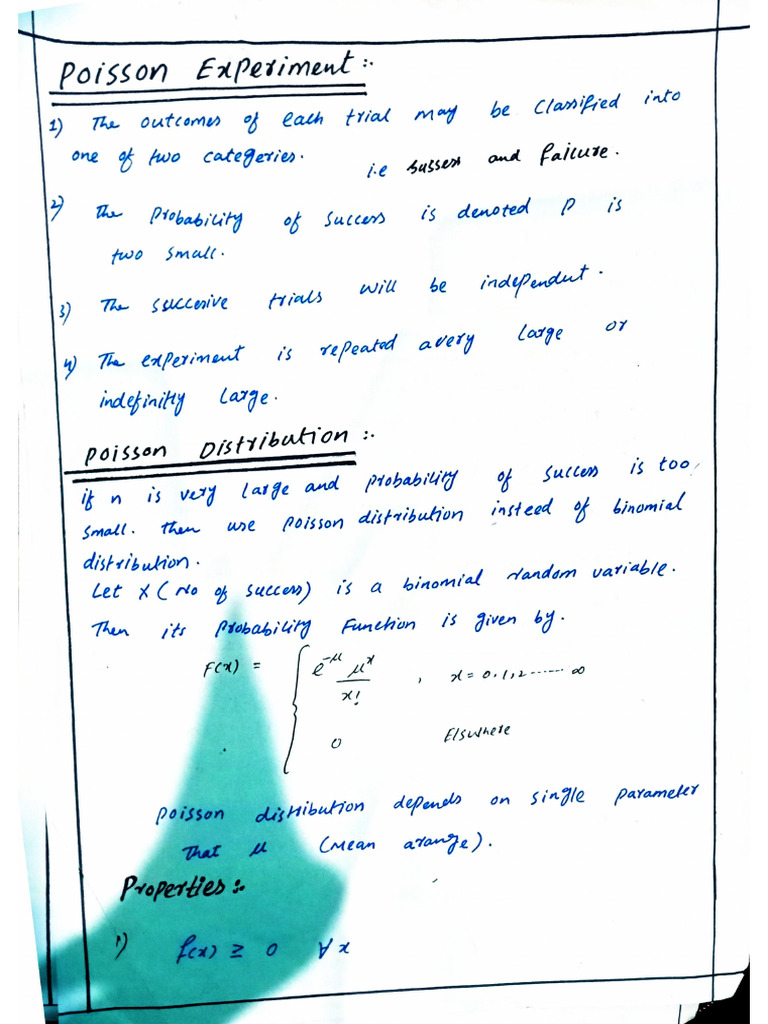 Poisson Experiment:.
1) The outcomes of each trial may be Classified into
one of two categeries. i.e Sussess and failure.
2) The Probability of Success is denoted P is
two small.
3) The succesive trials will be independent.
4) The experiment is repeated avery large or
indefinitly large.
Poisson Distribution:.
if n is very large and probability of success is too
small. then use poisson distribution instead of binomial
distribution.
Let X (No of success) is a binomial random variable.
Then its Probability Function is given by.
F(x) = { e^-μ μ^x / x! , x = 0,1,2 ------- ∞
0 Elswhere
Poisson distribution depends on single parameter
That μ (Mean arange).
Properties:.
1) f(x) ≥ 0 ∀ x